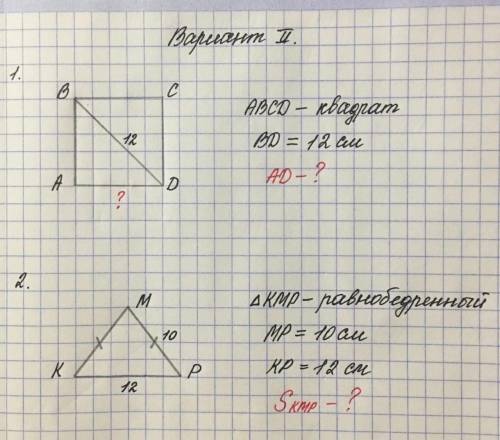 Вариант II.
1.
B C
12
A D
?
ABCD – квадрат
BD = 12 см
AD – ?
2.
M
10
K P
12
△KMP – равнобедренный
MP = 10 см
KP = 12 см
SKMP – ?